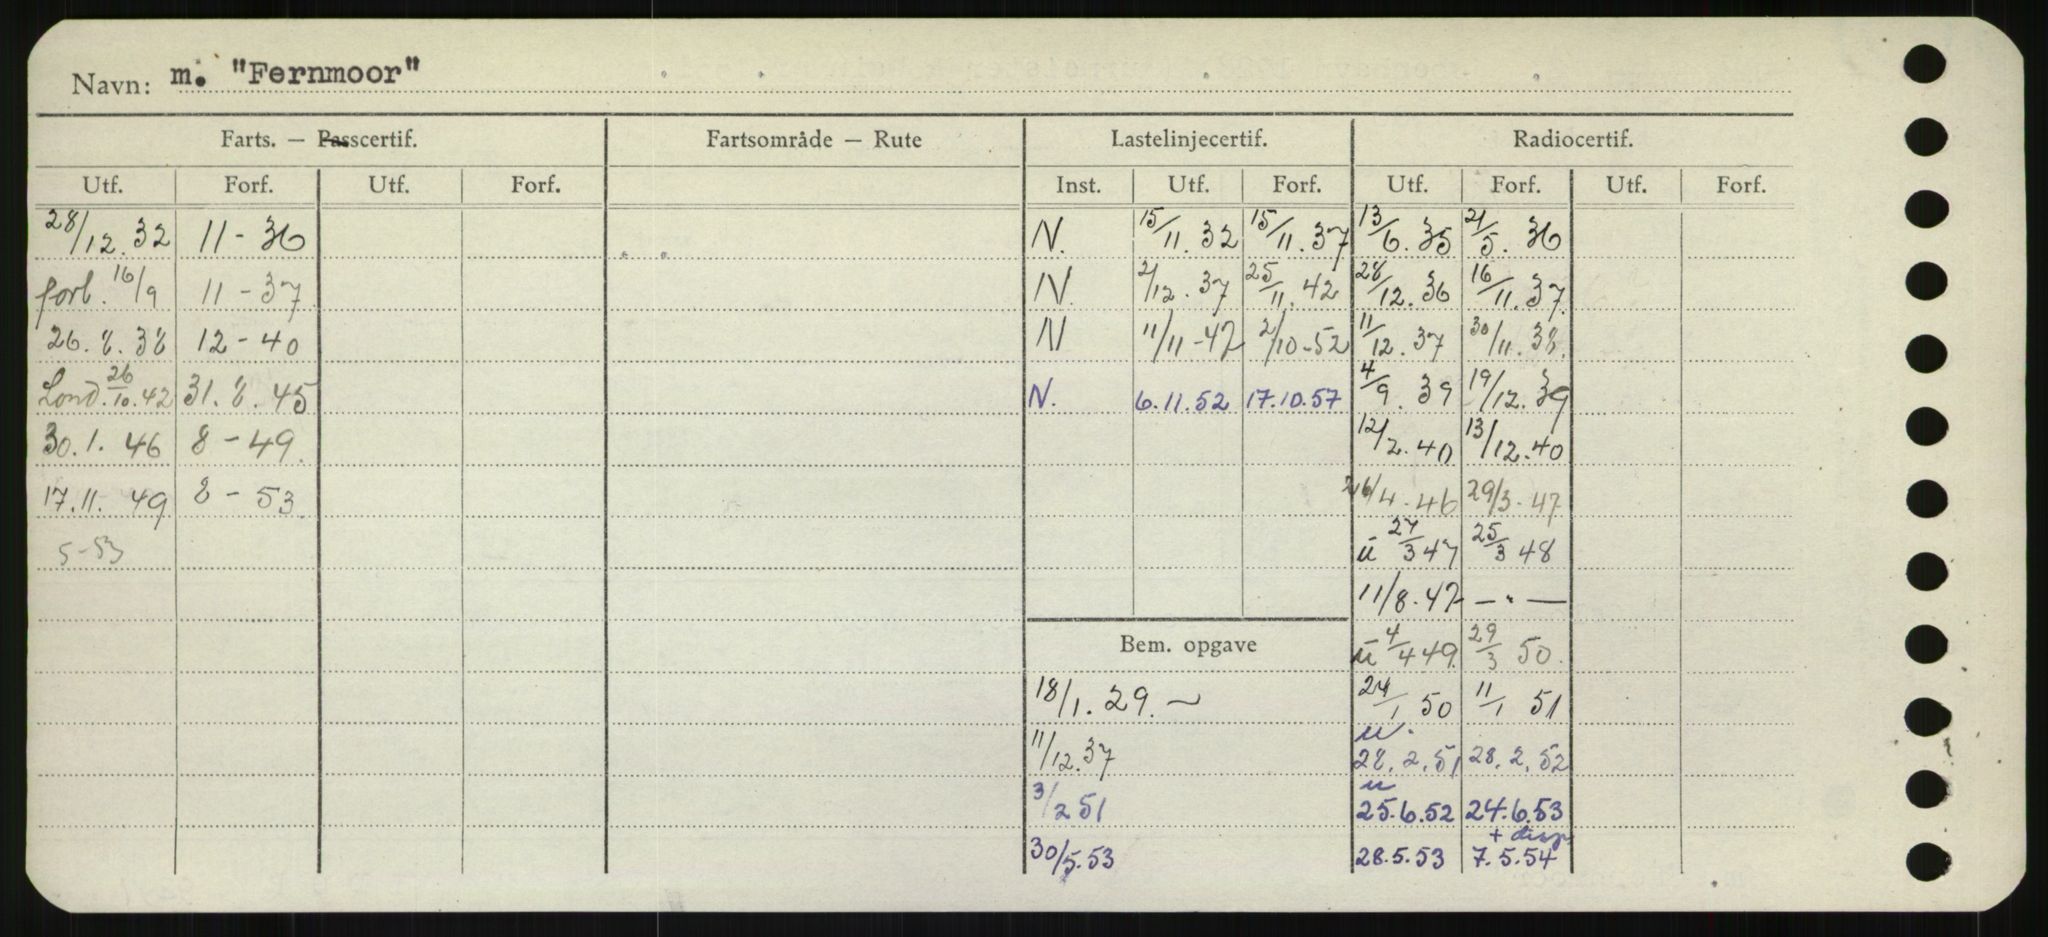 Navn: m. "Fernmoor"
Farts. — Passcertif. Fartsområde — Rute Lastelinjecertif. Radiocertif.
Utf. Forf. Utf. Forf. Inst. Utf. Forf. Utf. Forf. Utf. Forf.
28/12.32 11-36 N. 15/11.32 15/11.37 13/6.35 21/5.36
forl. 16/9 11-37 N. 2/12.37 25/11.42 28/12.36 16/11.37
26.8.38 12-40 N 11/11-47 2/10-52 11/12.37 30/11.38.
Lond. 26/10.42 31.8.45 N. 6.11.52 17.10.57 4/9.39 19/12.39
30.1.46 8-49. 12/2.40 13/12.40
17.11.49 8-53 26/4.46 29/3.47
5-53 u 27/3 47 25/3 48
11/8.47 — " —
Bem. opgave u 4/4 49. 29/3 50.
18/1.29. ~ 24/1 50 11/1 51
11/12.37 u. 28.2.51 28.2.52
3/2 51 u 25.6.52 24.6.53
+ disp
30/5.53 28.5.53 7.5.54